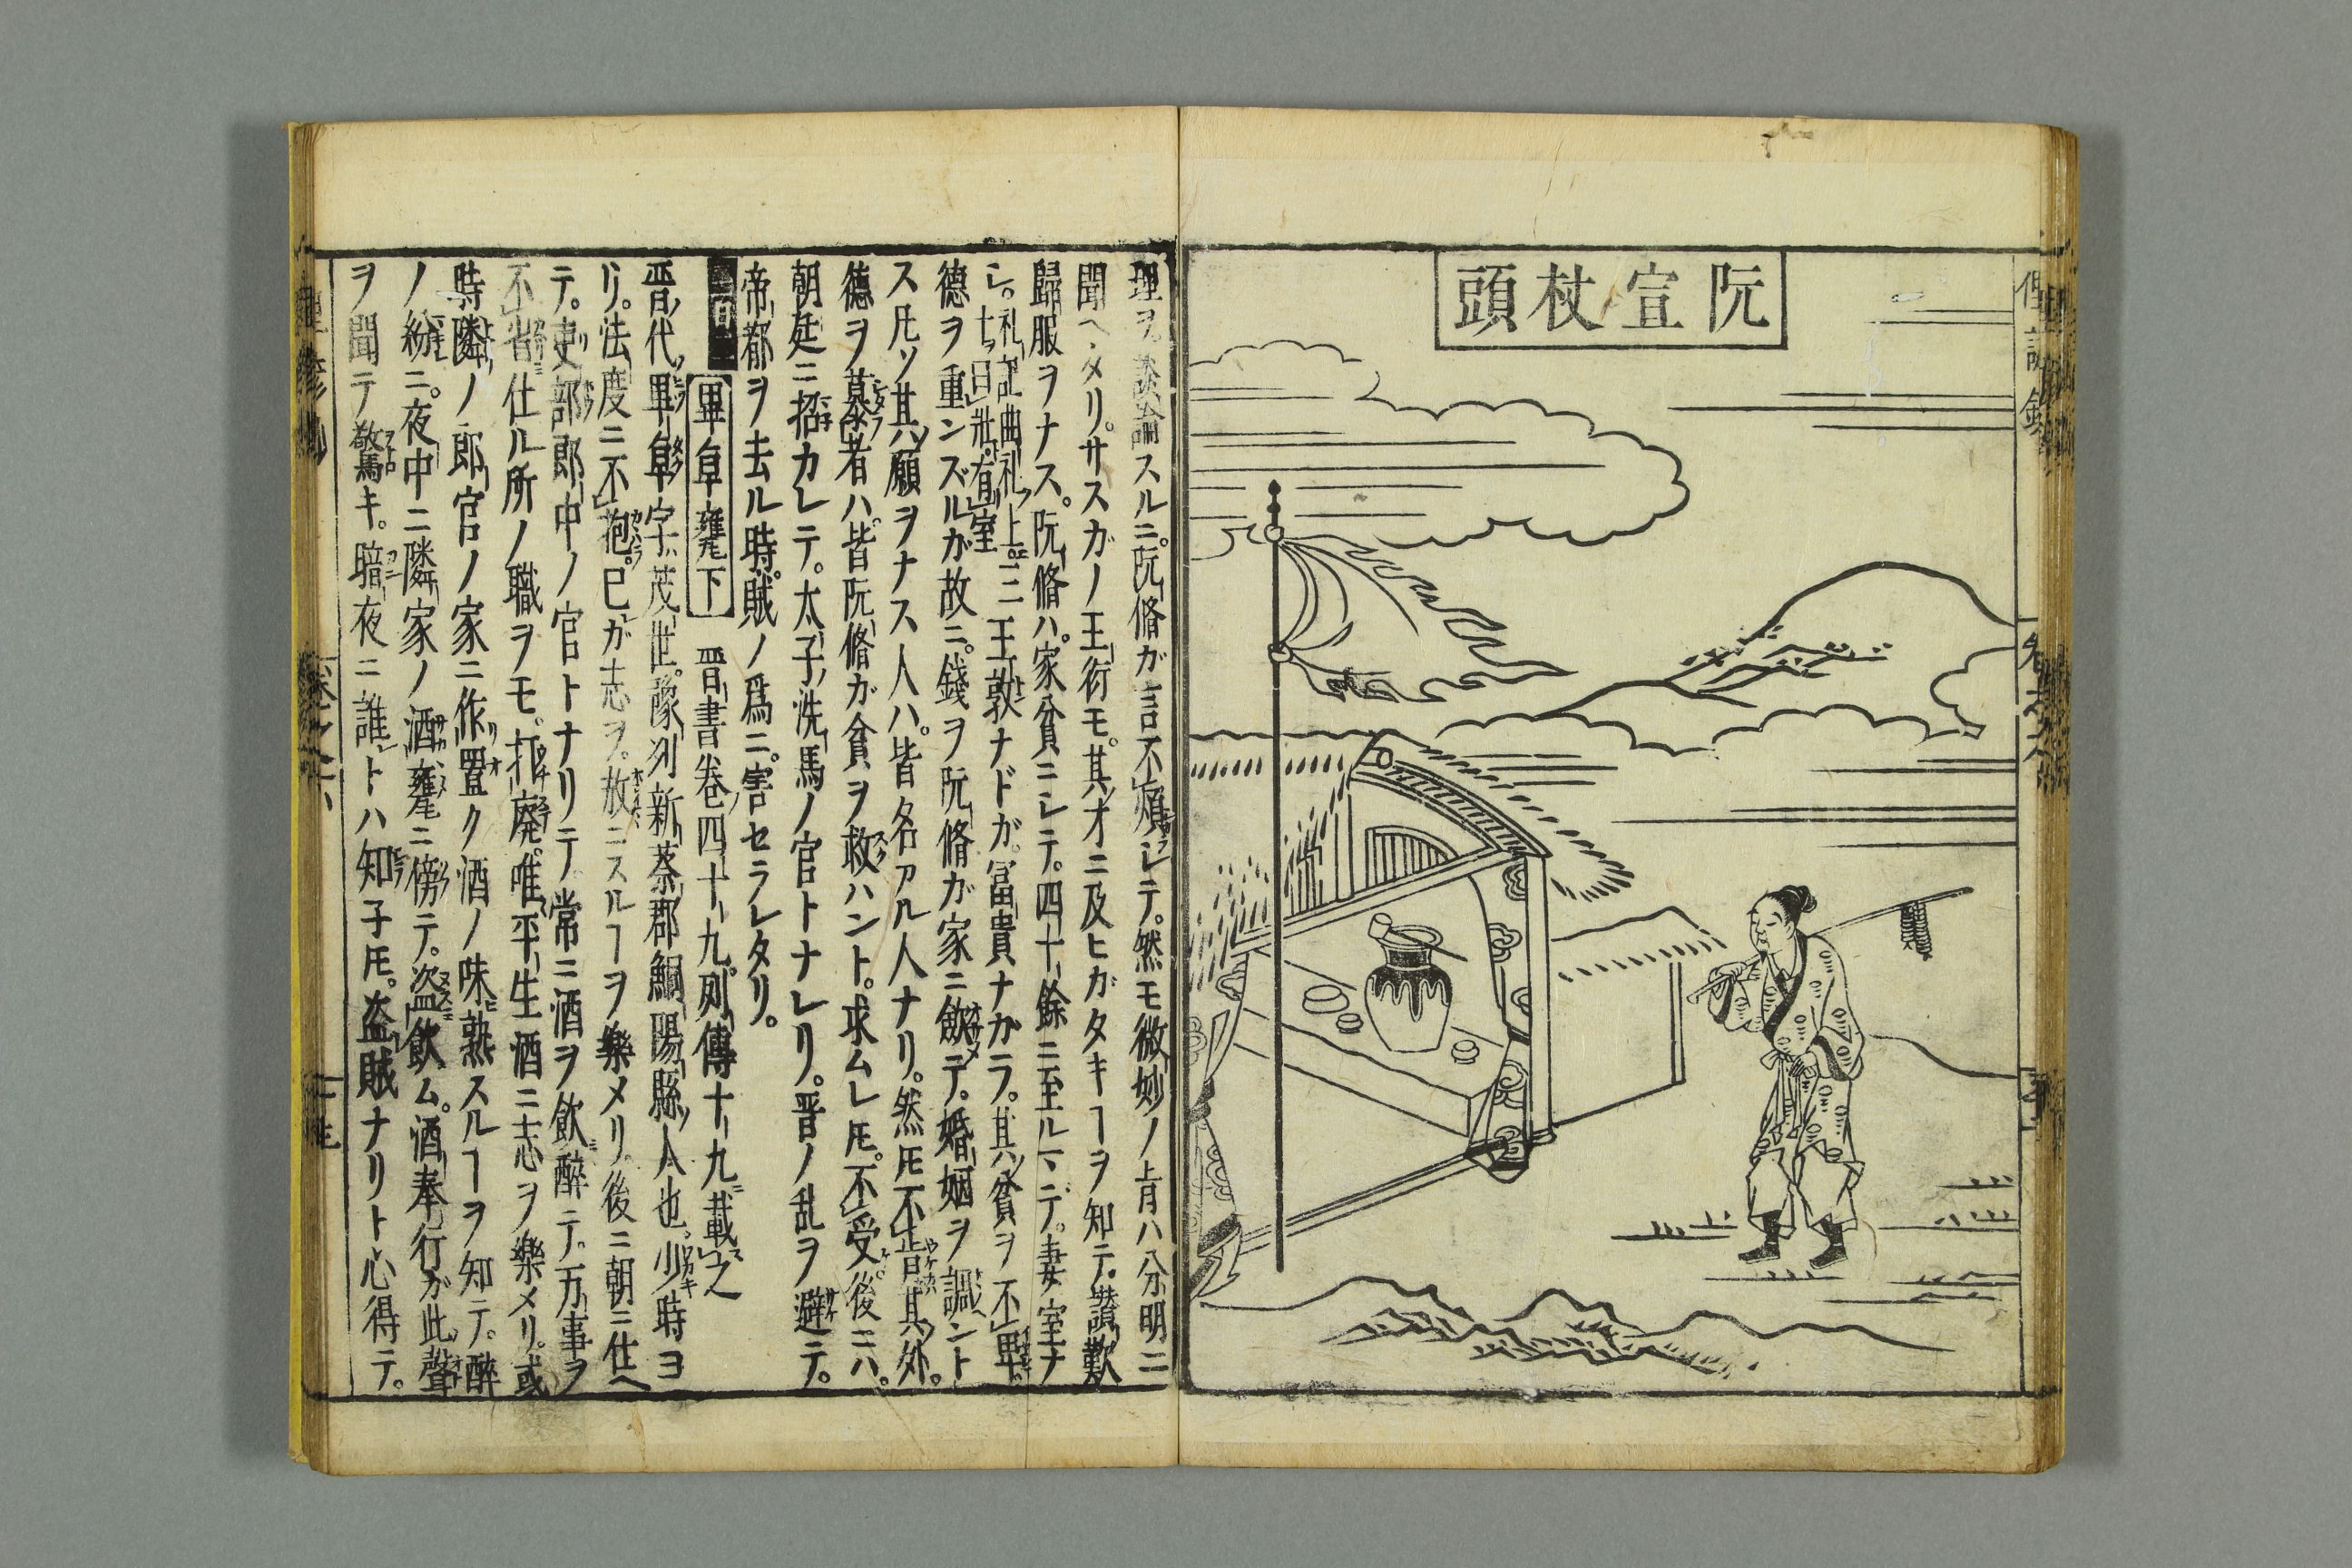 阮宣杖頭
理ヲ談論スルニ。阮脩ガ言不煩シテ。然モ微妙ノ㫖ハ分明ニ
聞ヘタリ。サスガノ王衍モ。其才ニ及ヒガタキヿヲ知テ。讃歎
歸服ヲナス。阮脩ハ。家貧ニシテ。四十餘ニ至ルマデ。妻室ナ
シ。礼記曲礼上ニ三十ヲ曰壯。有室王敦ナドガ。冨貴ナガラ。其貧ヲ不卑。
德ヲ重ンズルガ故ニ。錢ヲ阮脩ガ家ニ歛テ。婚姻ヲ調ント
ス𪜈ソ其願ヲナス人ハ。皆名アル人ナリ。然𪜈不告其外。
德ヲ慕者ハ。皆阮脩ガ貧ヲ救ハント。求ムレ𪜈。不受。後ニハ。
朝廷ニ招カレテ。太子洗馬ノ官トナレリ。晋ノ乱ヲ避テ。
帝都ヲ去ル時。賊ノ爲ニ。害セラレタリ。
畢卓甕下 晋書卷四十九。列傳十九載之
晋代畢卓字茂世。豫州新蔡郡鮦陽縣人也。少時ヨ
リ。法度ニ不抱。已ガ志ヲ。放ニスルヿヲ樂メリ。後ニ朝ニ仕ヘ
テ。吏部郎中ノ官トナリテ常ニ酒ヲ飲醉テ。万事ヲ
不省仕ル所ノ職ヲモ。打廢。唯平生酒ニ志ヲ樂メリ。或
時隣ノ郎官ノ家ニ作置ク酒ノ味熟スルヿヲ知テ。醉
ノ紛ニ。夜中ニ隣家ノ酒甕ニ傍テ。盗飲ム。酒奉行ガ此聲
ヲ聞テ驚キ。暗夜ニ誰トハ知子𪜈。盗賊ナリト心得テ。